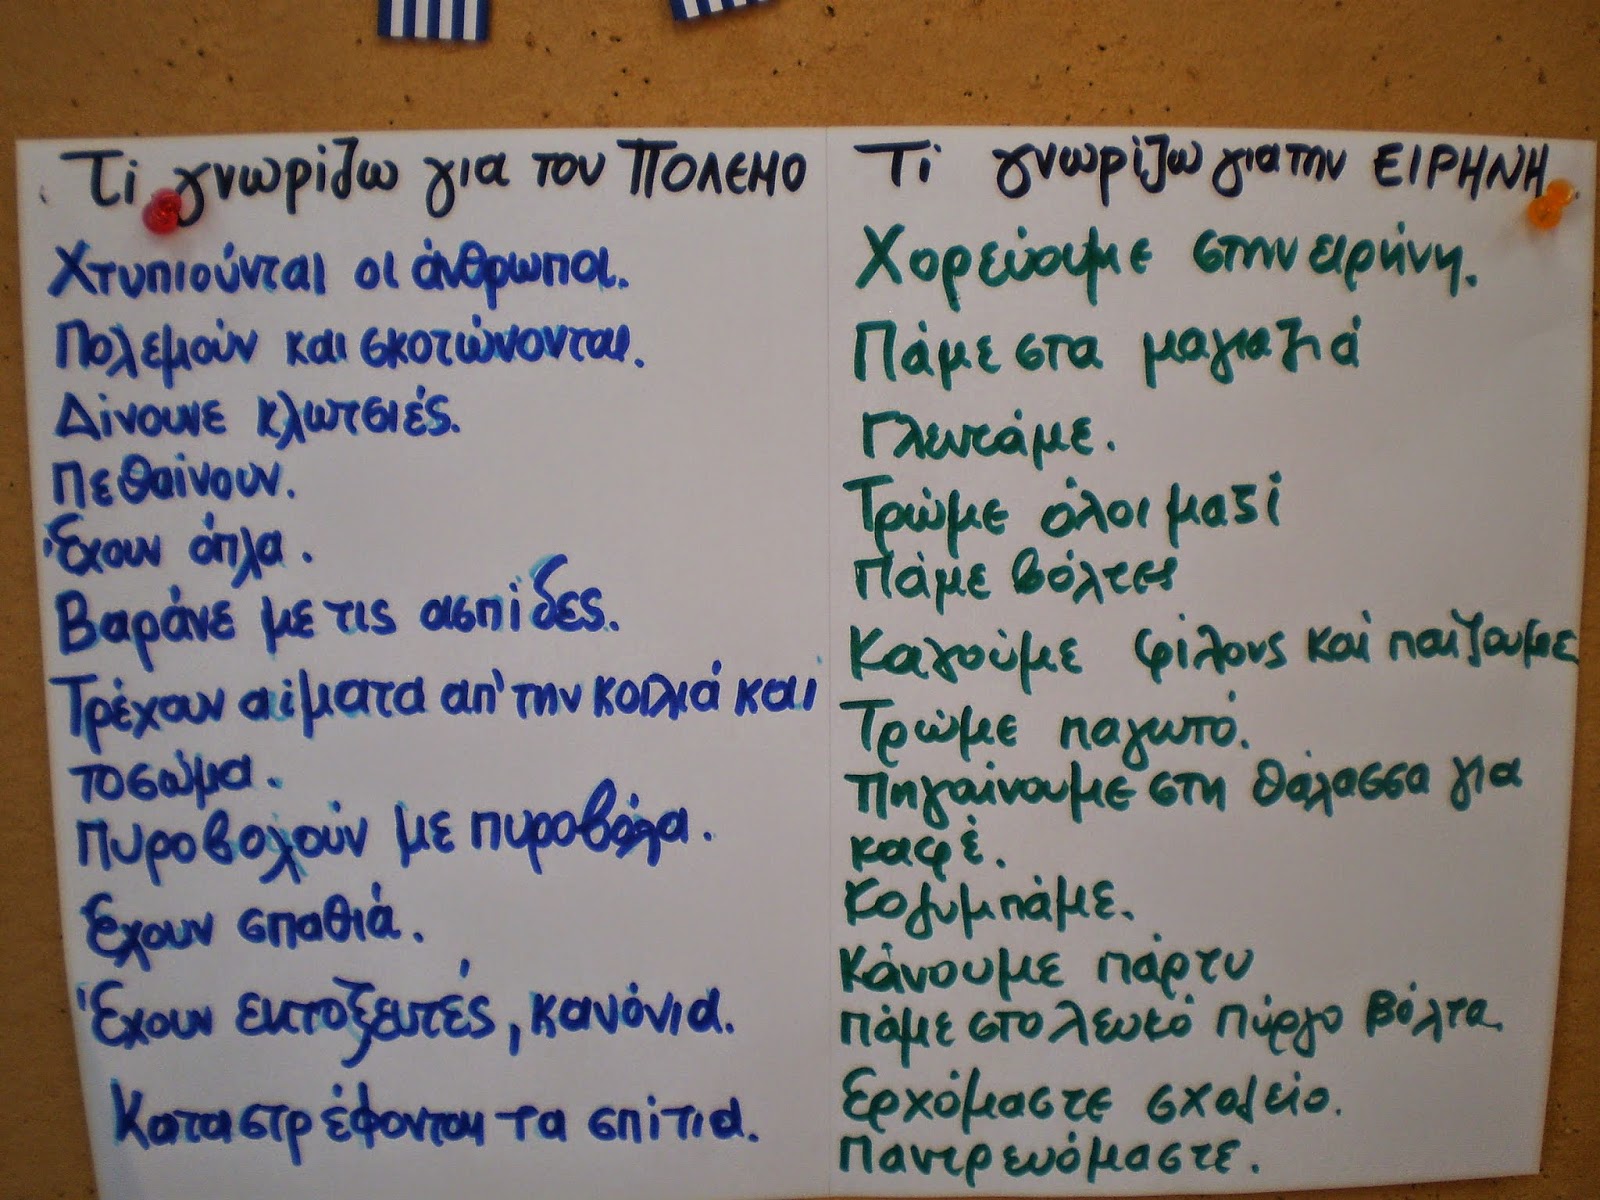 Τι γνωρίζω για τον ΠΟΛΕΜΟ
Χτυπιούνται οι άνθρωποι.
Πολεμούν και σκοτώνονται.
Δίνουνε κλωτσιές.
Πεθαίνουν.
Έχουν όπλα.
Βαράνε με τις ασπίδες.
Τρέχουν αίματα απ' την κοιλιά και
το σώμα.
Πυροβολούν με πυροβόλα.
Έχουν σπαθιά.
Έχουν εκτοξευτές, κανόνια.
Καταστρέφονται τα σπίτια.
Τι γνωρίζω για την ΕΙΡΗΝΗ
Χορεύουμε στην ειρήνη.
Πάμε στα μαγαζιά
Γλεντάμε.
Τρώμε όλοι μαζί
Πάμε βόλτες
Καλούμε φίλους και παίζουμε
Τρώμε παγωτό.
Πηγαίνουμε στη θάλασσα για
καφέ.
Κολυμπάμε.
Κάνουμε πάρτυ
Πάμε στο λευκό πύργο βόλτα.
Ερχόμαστε σχολείο.
Παντρευόμαστε.